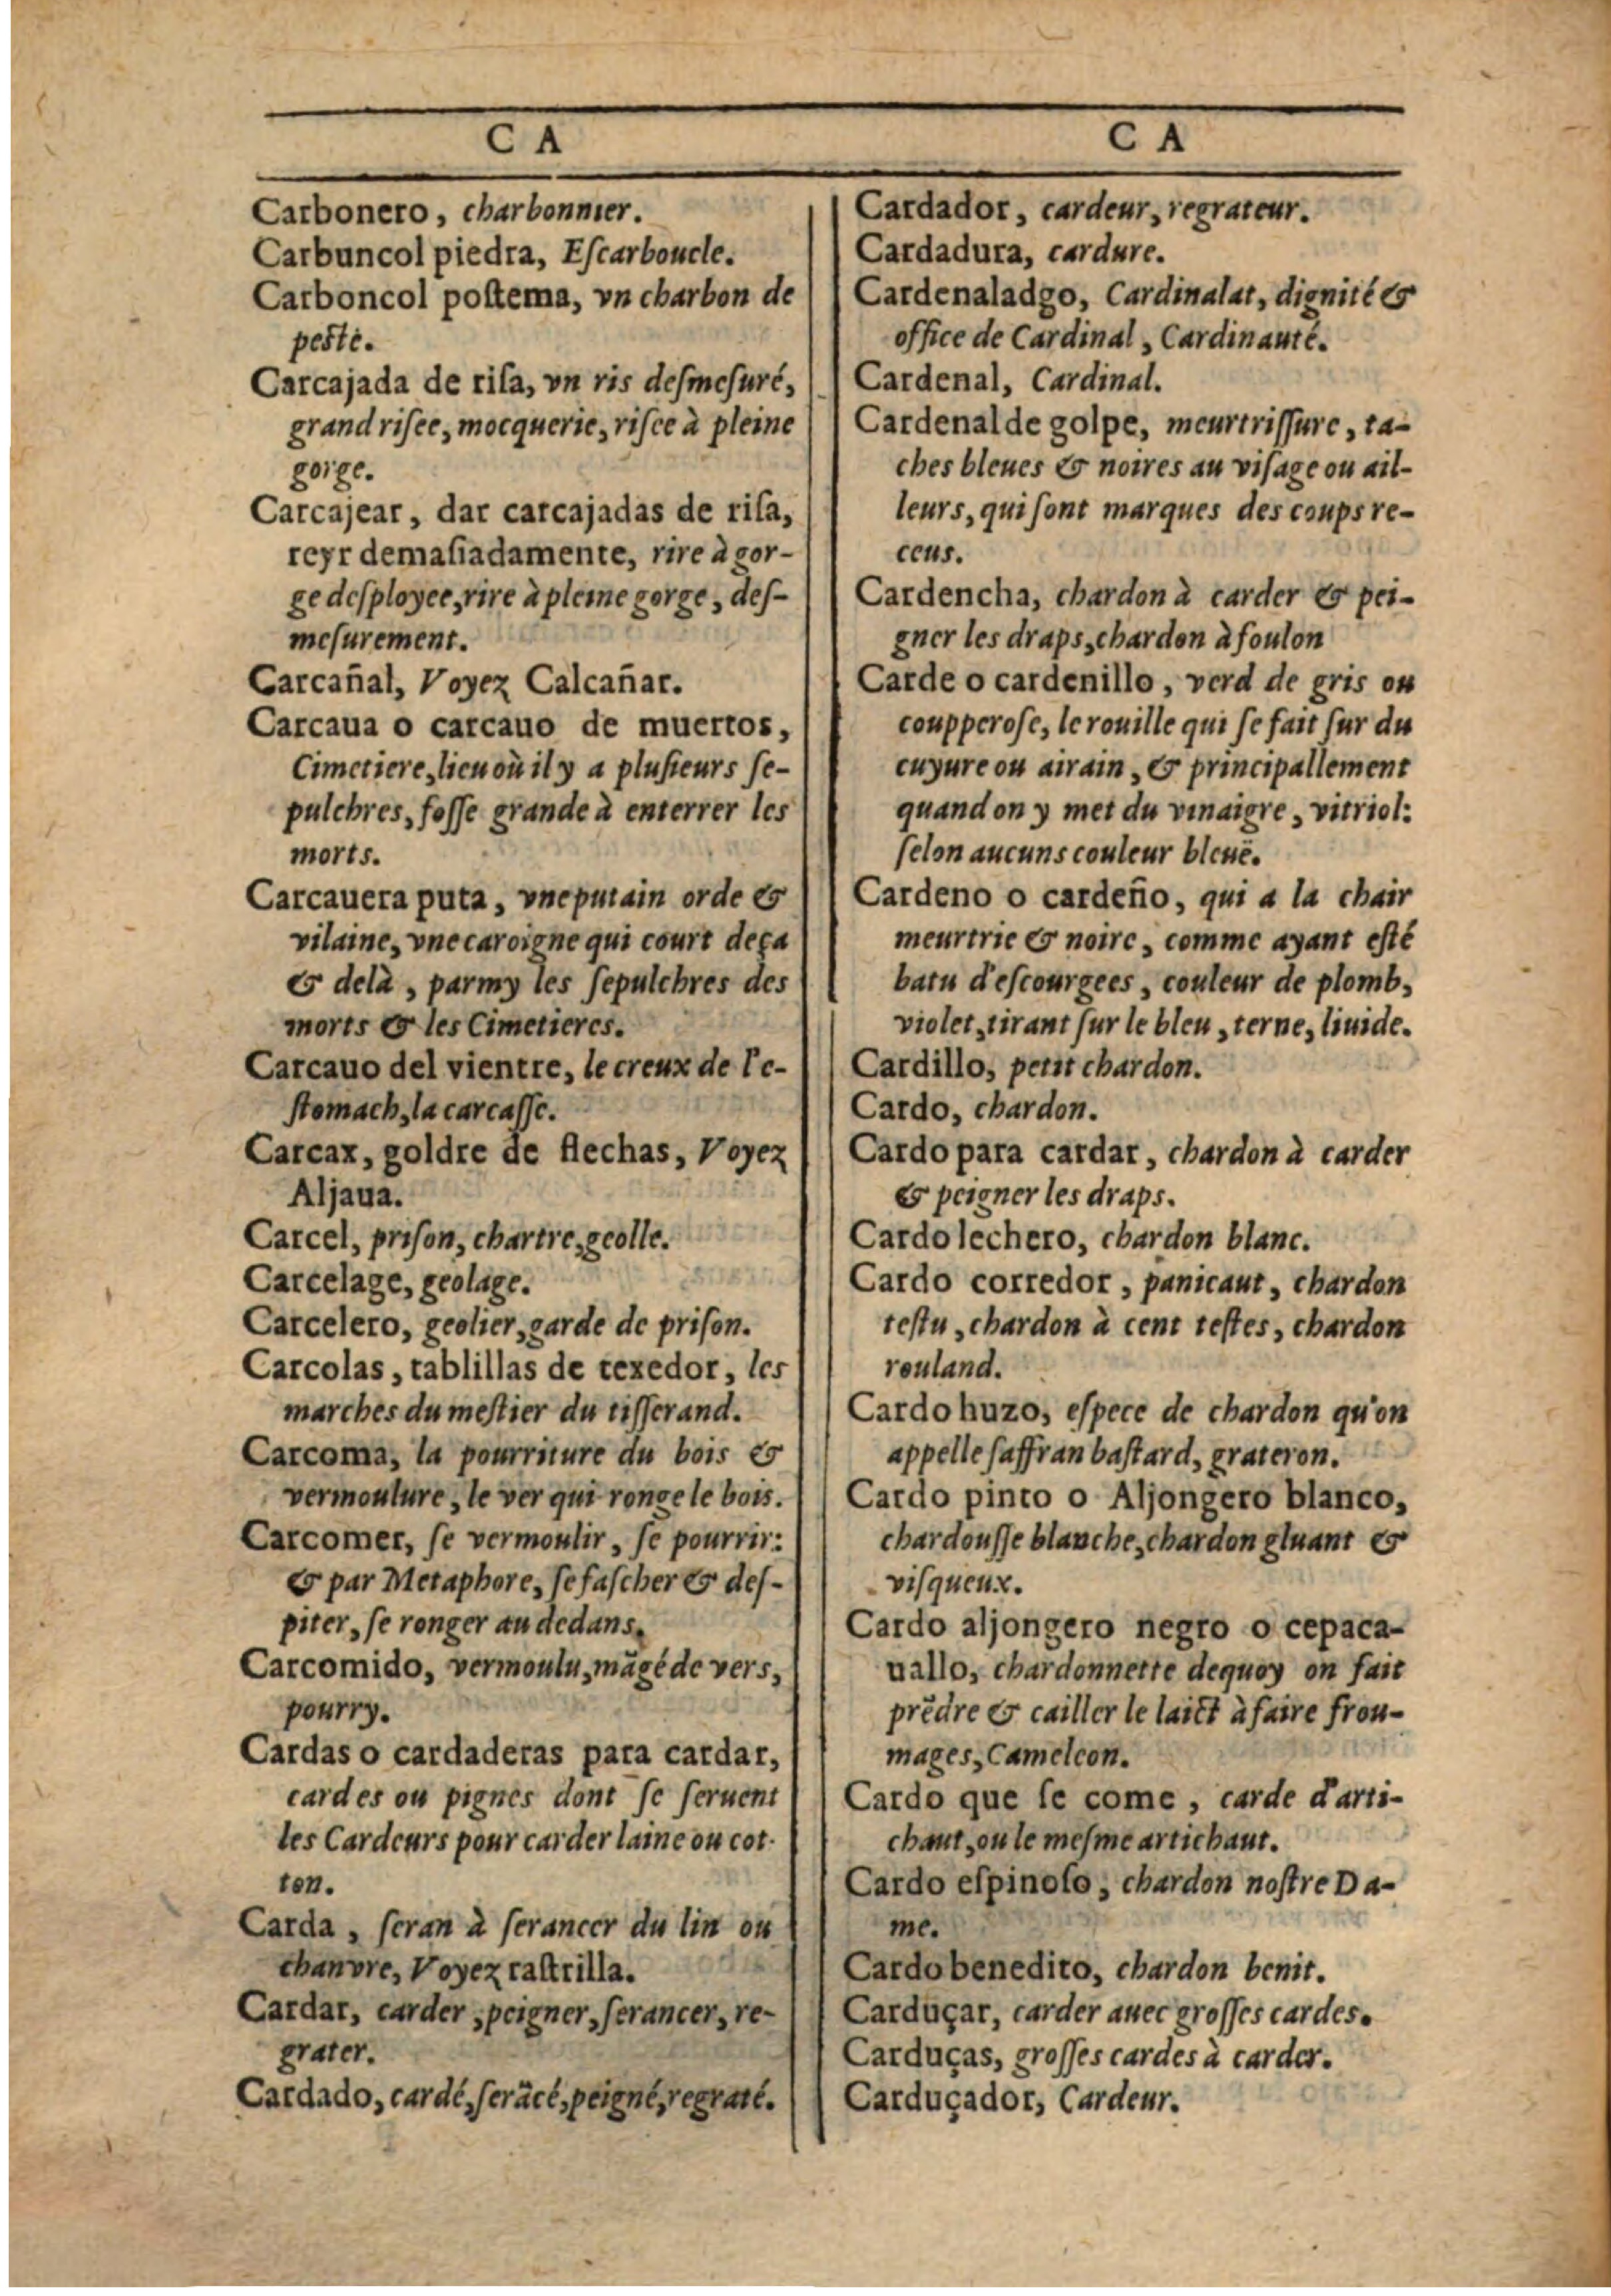 C A
Carbonero, charbonnier.
Carbuncol piedra, Eſcarboucle.
Carboncol poſtema, vn charbon de
peſte.
Carcajada de riſa, vn ris deſmeſuré,
grand riſee, mocquerie, riſee à pleine
gorge.
Carcajear, dar carcajadas de riſa,
reyr demaſiadamente, rire à gor-
ge deſployee, rire à pleine gorge, deſ-
meſurement.
Carcañal, Voyez Calcañar.
Carcaua o carcauo de muertos,
Cimetiere, lieu où il y a pluſieurs ſe-
pulchres, foſſe grande à enterrer les
morts.
Carcauera puta, vne putain orde &
vilaine, vne caroigne qui court deça
& delà, parmy les ſepulchres des
morts & les Cimetieres.
Carcauo del vientre, le creux de l'e-
ſtomach, la carcaſſe.
Carcax, goldre de flechas, Voyez
Aljaua.
Carcel, priſon, chartre, geolle.
Carcelage, geolage.
Carcelero, geolier, garde de priſon.
Carcolas, tablillas de texedor, les
marches du meſtier du tiſſerand.
Carcoma, la pourriture du bois &
vermoulure, le ver qui ronge le bois.
Carcomer, ſe vermoulir, ſe pourrir:
& par Metaphore, ſe faſcher & deſ-
piter, ſe ronger au dedans.
Carcomido, vermoulu, mãgé de vers,
pourry.
Cardas o cardaderas para cardar,
cardes ou pignes dont ſe ſeruent
les Cardeurs pour carder laine ou cot-
ton.
Carda, ſeran à ſerancer du lin ou
chanvre, Voyez raſtrilla.
Cardar, carder, peigner, ſerancer, re-
grater.
Cardado, cardé, ſerãcé, peigné, regraté.
C A
Cardador, cardeur, regrateur.
Cardadura, cardure.
Cardenaladgo, Cardinalat, dignité &
office de Cardinal, Cardinauté.
Cardenal, Cardinal.
Cardenal de golpe, meurtriſſure, ta-
ches bleues & noires au viſage ou ail-
leurs, qui ſont marques des coups re-
ceus.
Cardencha, chardon à carder & pei-
gner les draps, chardon à foulon
Carde o cardenillo, verd de gris ou
coupperoſe, le rouille qui ſe fait ſur du
cuyure ou airain, & principallement
quand on y met du vinaigre, vitriol:
ſelon aucuns couleur bleuë.
Cardeno o cardeño, qui a la chair
meurtrie & noire, comme ayant eſté
batu d'eſcourgees, couleur de plomb,
violet, tirant ſur le bleu, terne, liuide.
Cardillo, petit chardon.
Cardo, chardon.
Cardo para cardar, chardon à carder
& peigner les draps.
Cardo lechero, chardon blanc.
Cardo corredor, panicaut, chardon
teſtu, chardon à cent teſtes, chardon
rouland.
Cardo huzo, eſpece de chardon qu'on
appelle ſaffran baſtard, grateron.
Cardo pinto o Aljongero blanco,
chardouſſe blanche, chardon gluant &
viſqueux.
Cardo aljongero negro o cepaca-
uallo, chardonnette dequoy on fait
prẽdre & cailler le laict à faire frou-
mages, Cameleon.
Cardo que ſe come, carde d'arti-
chaut, ou le meſme artichaut.
Cardo eſpinoſo, chardon noſtre Da-
me.
Cardo benedito, chardon benit.
Carduçar, carder auec groſſes cardes.
Carduças, groſſes cardes à carder.
Carduçador, Cardeur.